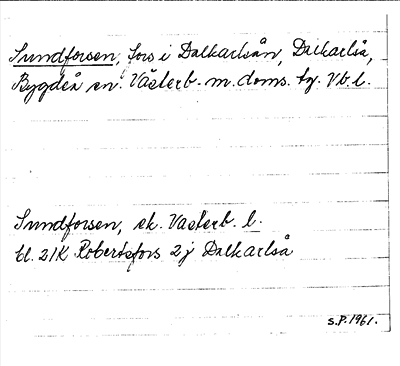 Sundforsen, fors i Dalkarlsån, Dalkarlså,
Bygdeå sn. Västerb. m. doms. tg. Vb. l.
Sundforsen, ek. Västerb. l.
bl. 21K Robertsfors 2j Dalkarlså
S.P. 1961.